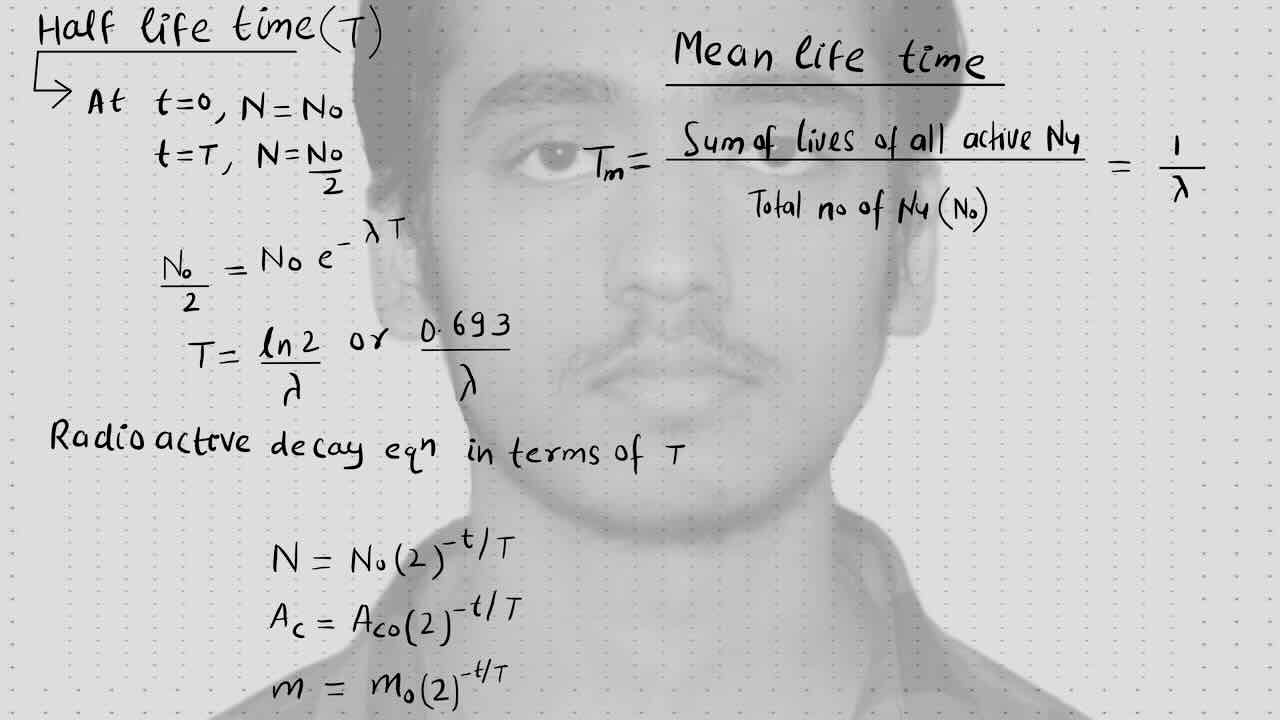 Half life time (T)
At t=0, N=N₀
t=T, N=N₀/2
N₀/2 = N₀ e^-λT
T= ln2/λ or 0.693/λ
Radioactive decay eqⁿ in terms of T
N = N₀(2)^-t/T
A_c = A_co(2)^-t/T
m = m₀(2)^-t/T
Mean life time
T_m= Sum of lives of all active Ny / Total no of Ny (N₀) = 1/λ